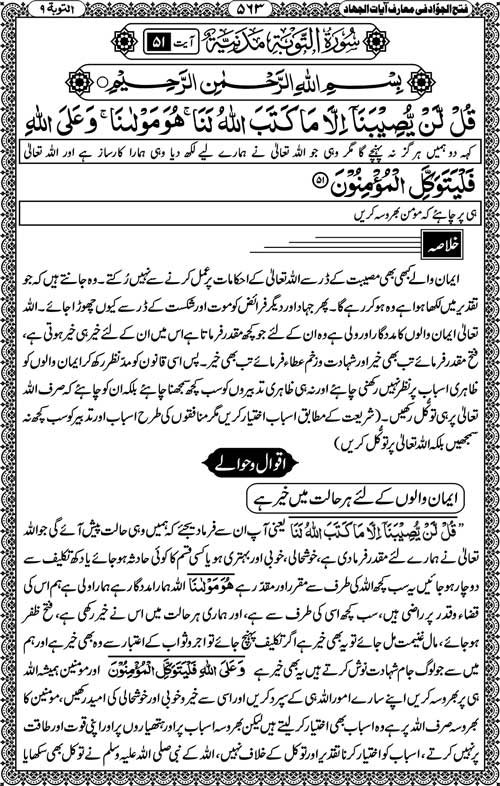 فتح الجوّاد فی معارف آیات الجهاد ۵۶۳ التوبة ۹
سُوْرَةُ التَّوْبَةِ مَدَنِيَّةٌ آیت ۵۱
بِسْمِ اللهِ الرَّحْمٰنِ الرَّحِيْمِ
قُلْ لَّنْ يُّصِيْبَنَاۤ اِلَّا مَا كَتَبَ اللهُ لَنَا ۚ هُوَ مَوْلٰىنَا ۚ وَعَلَى اللهِ
کہہ دو ہمیں ہرگز نہ پہنچے گا مگر وہی جو اللہ تعالیٰ نے ہمارے لیے لکھ دیا وہی ہمارا کارساز ہے اور اللہ تعالیٰ
فَلْيَتَوَكَّلِ الْمُؤْمِنُوْنَ ۵۱
ہی پر چاہئے کہ مؤمن بھروسہ کریں
خلاصہ
ایمان والے کبھی بھی مصیبت کے ڈر سے اللہ تعالیٰ کے احکامات پر عمل کرنے سے نہیں رُکتے۔ وہ جانتے ہیں کہ جو
تقدیر میں لکھا ہوا ہے وہ ہو کر رہے گا۔ پھر جہاد اور دیگر فرائض کو موت اور شکست کے ڈر سے کیوں چھوڑا جائے۔ اللہ
تعالیٰ ایمان والوں کا مددگار اور ولی ہے وہ ان کے لئے جو کچھ مقدر فرماتا ہے اس میں ان کے لئے خیر ہی خیر ہوتی ہے،
فتح مقدر فرمائے تب بھی خیر اور شہادت و زخم عطاء فرمائے تب بھی خیر۔ پس اسی قانون کو مدّ نظر رکھ کر ایمان والوں کو
ظاہری اسباب پر نظر نہیں رکھنی چاہئے اور نہ ہی ظاہری تدبیروں کو سب کچھ سمجھنا چاہئے بلکہ ان کو چاہئے کہ صرف اللہ
تعالیٰ پر ہی توکّل رکھیں۔ (شریعت کے مطابق اسباب اختیار کریں مگر منافقوں کی طرح اسباب اور تدبیر کو سب کچھ نہ
سمجھیں بلکہ اللہ تعالیٰ پر توکّل کریں)
اقوال و حوالے
ایمان والوں کے لئے ہر حالت میں خیر ہے
”قُلْ لَّنْ يُّصِيْبَنَاۤ اِلَّا مَا كَتَبَ اللهُ لَنَا یعنی آپ ان سے فرما دیجئے کہ ہمیں وہی حالت پیش آئے گی جو اللہ
تعالیٰ نے ہمارے لئے مقدر فرمادی ہے، خوشحالی، خوبی اور بہتری ہو یا کسی قسم کا کوئی حادثہ ہو جائے یا دکھ تکلیف سے
دوچار ہو جائیں یہ سب کچھ اللہ کی طرف سے مقرر اور مقدر ہے هُوَ مَوْلٰىنَا اللہ ہمارا مددگار ہے ہمارا ولی ہے ہم اس کی
قضاء و قدر پر راضی ہیں، سب کچھ اسی کی طرف سے ہے، اور ہماری ہر حالت میں اس نے خیر رکھی ہے، فتح ظفر
ہو جائے، مال غنیمت مل جائے تو یہ بھی خیر ہے اگر تکلیف پہنچ جائے تو اجر و ثواب کے اعتبار سے وہ بھی خیر ہے اور ہم
میں سے جو لوگ جام شہادت نوش کرتے ہیں یہ بھی خیر ہے وَعَلَى اللهِ فَلْيَتَوَكَّلِ الْمُؤْمِنُوْنَ اور مؤمنین ہمیشہ اللہ
ہی پر بھروسہ کریں اپنے سارے امور اللہ ہی کے سپرد کریں اور اسی سے خیر و خوبی اور خوشحالی کی امید رکھیں، مؤمنین کا
بھروسہ صرف اللہ پر ہے وہ اسباب بھی اختیار کر لیتے ہیں لیکن بھروسہ اسباب پر اور ہتھیاروں پر اور اپنی قوت اور طاقت
پر نہیں کرتے، اسباب کو اختیار کرنا تقدیر اور توکل کے خلاف نہیں، اللہ کے نبی صلی اللہ علیہ وسلم نے توکل بھی سکھایا